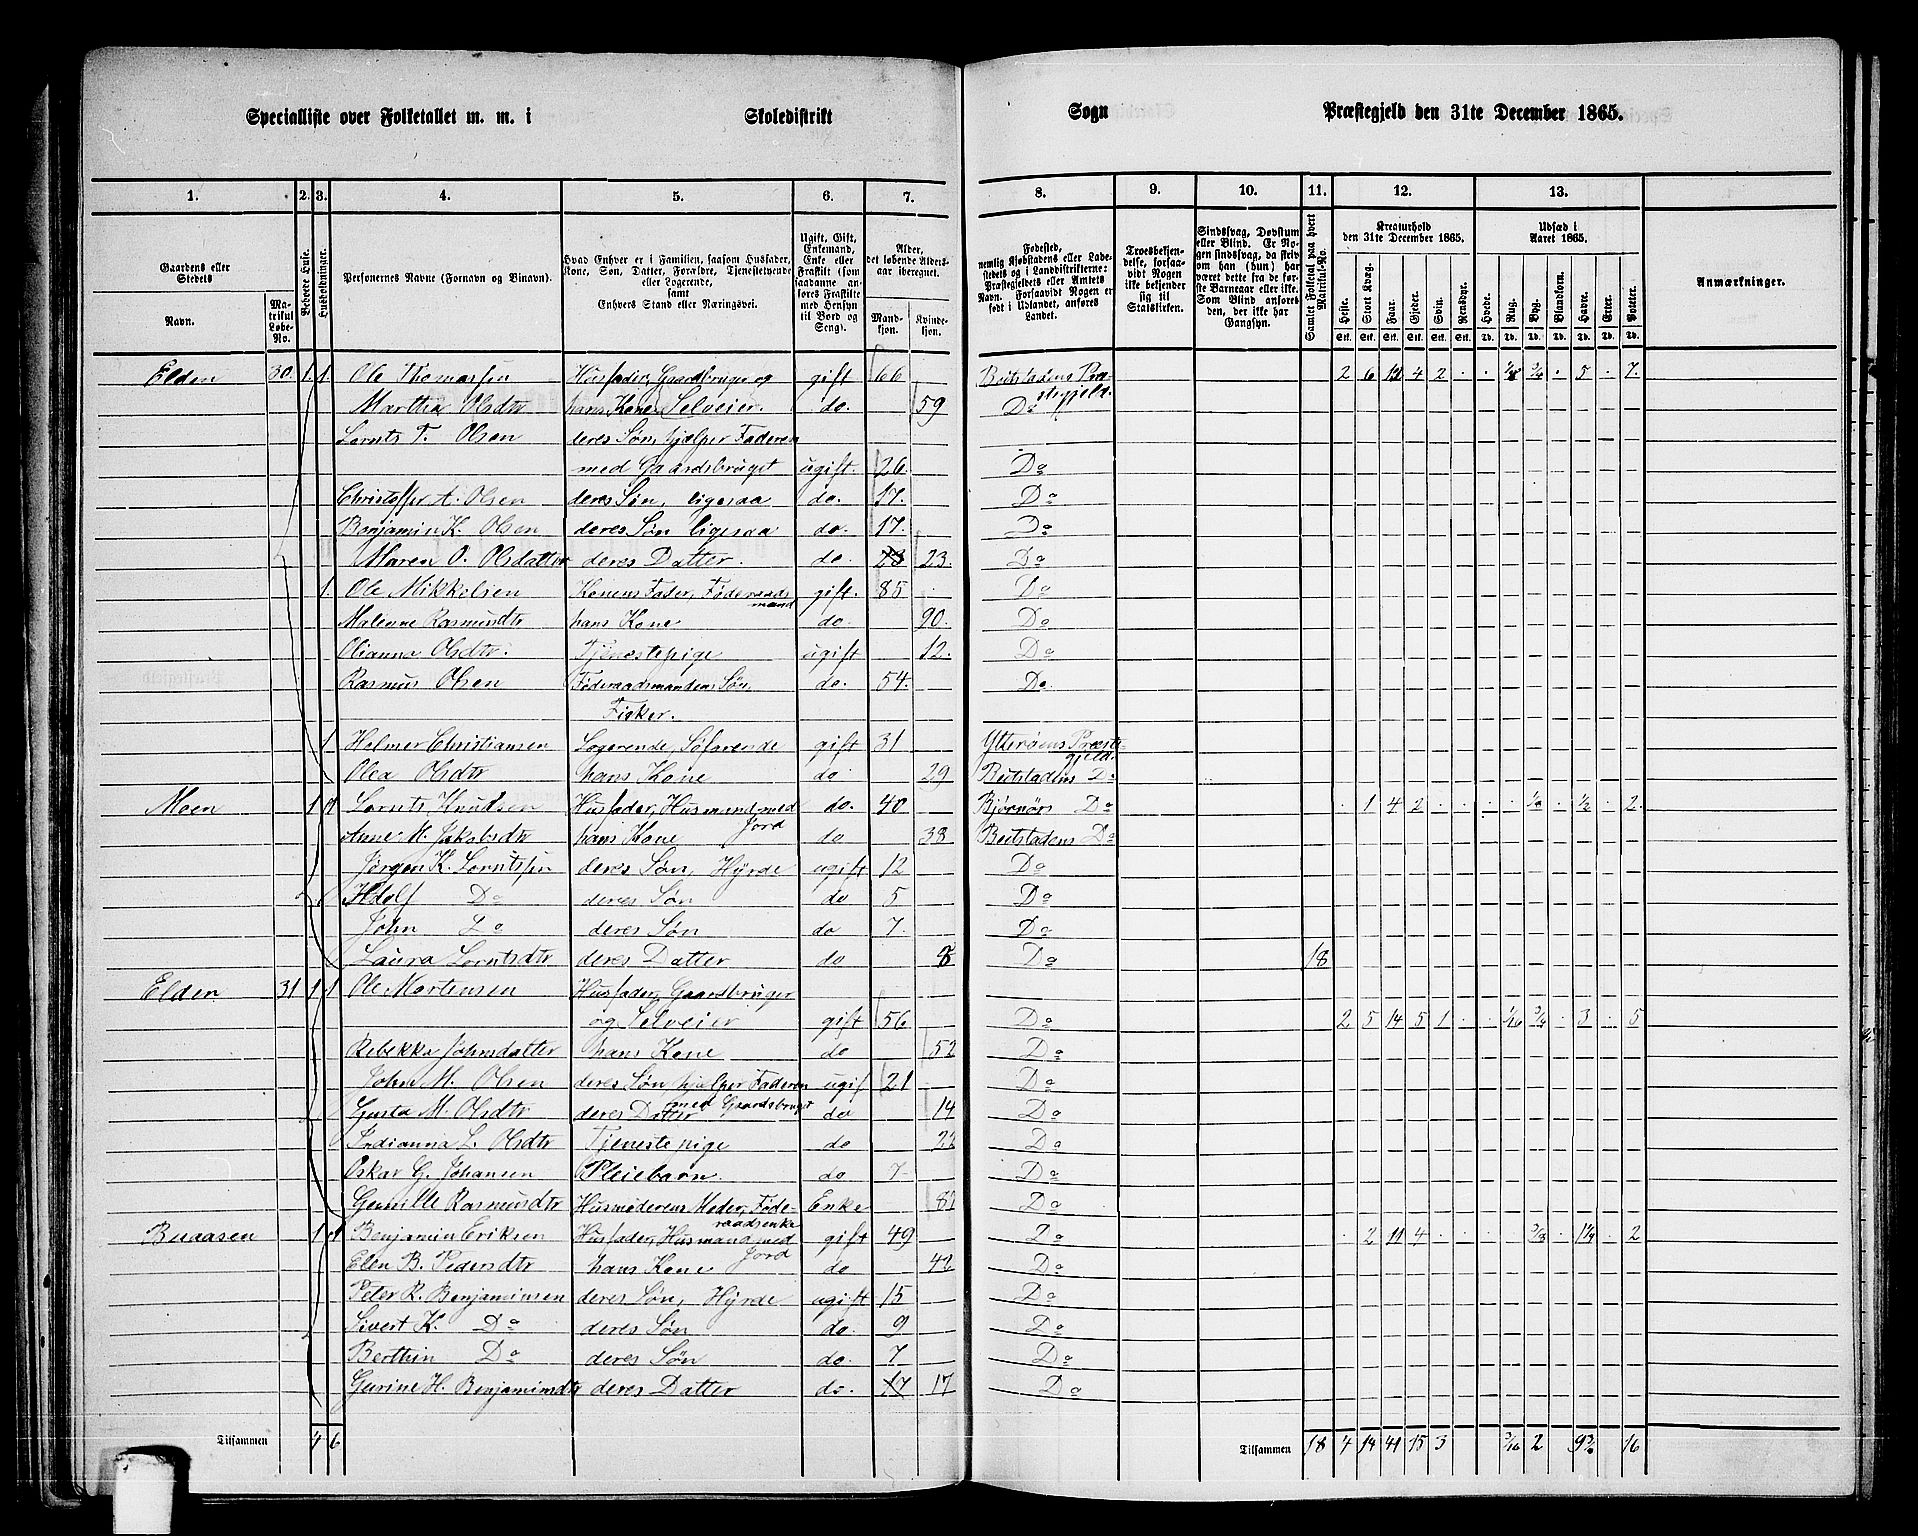 Specialliste over Folketallet m. m. i Skoledistrikt Sogn Præstegjeld den 31te December 1865.
1. 2. 3. 4. 5. 6. 7. 8. 9. 10. 11. 12. 13.
Gaardens eller Stedets Navn.
Matrikul Løbe-No.
Beboede Huse.
Husholdninger.
Personernes Navne (Fornavn og Binavn).
Hvad Enhver er i Familien, saasom Husfader, Kone, Søn, Datter, Forældre, Tjenestetyende eller Logerende, samt Enhvers Stand eller Næringsvei.
Ugift, Gift, Enkemand, Enke eller Fraskilt (som saadanne anføres Fraskilte med Hensyn til Bord og Seng).
Alder, det løbende Aldersaar iberegnet.
Mandkjøn. Kvindekjøn.
Fødested, nemlig Kjøbstadens eller Ladestedets og i Landdistrikterne: Præstegjeldets eller Amtets Navn. Forsaavidt Nogen er født i Udlandet, anføres Landet.
Troesbekjendelse, forsaavidt Nogen ikke bekjender sig til Statskirken.
Sindssvag, Døvstum eller Blind. Er Nogen sindssvag, da skrives om han (hun) har været dette fra de første Barneaar eller ikke. Som Blind anføres den, der ikke har Gangsyn.
Samlet Folketal paa hvert Matrikul-No.
Kreaturhold den 31te December 1865.
Heste. Stort Kvæg. Faar. Gjeder. Svin. Rensdyr.
Udsæd i Aaret 1865.
Hvede. Rug. Byg. Blandkorn. Havre. Erter. Poteter.
Anmærkninger.
Elden 30. 1. 1. Ole Thomassen Husfader, Gaardbruger og gift 66 Beitstadens Præstegjeld. 2 6 12 4 2 ¾ 5 7.
Martha Olsdtr hans Kone Selveier. do. 59 Do
Lornts T. Olsen deres Søn, hjælper Faderen
med Gaardsbruget ugift. 26. Do
Christoffer A. Olsen deres Søn, ligesaa do. 17. Do
Benjamin K. Olsen deres Søn ligesaa do. 17. Do
Maren O. Olsdatter deres Datter. do. 23. Do
1. Ole Mikkelsen Konens Fader, Føderaadsmand gift. 85 Do
Malene Rasmusdtr hans Kone do. 90. Do
Olianna Olsdtr. Tjenestepige ugift 12. Do
Rasmus Olsen Føderaadsmandens Søn, do. 54. Do
Fisker.
1 Helmer Christiansen Logerende, Søfarende gift 31 Ytterøens Præstegjeld.
Olea Olsdtr hans Kone do 29 Beitstadens Do
Moen 1 1 Lornts Knudsen Husfader, Husmand med Jord do. 40 Bjørnørs Do 1 4 2 ½ 2.
Anne M. Jakobsdtr hans Kone do 38 Beitstadens Do
Jørgen K. Lorntssen deres Søn, Hyrde ugift 12 Do
Adolf Do deres Søn do 5 Do
John Do deres Søn do 7. Do
Laura Lorntsdtr deres Datter do 8 Do 18
Elden 31 1 1 Ole Martensen Husfader, Gaardbruger
og Selveier gift 56 Do 2 5 14 5 1 1/16 ¾ 3 5
Rebekka Johnsdatter hans Kone do 52 Do
John M. Olsen deres Søn hjælper Faderen med Gaardsbruget ugif 21 Do
Gusta M. Olsdtr deres Datter do 14 Do
Indianna L. Olsdtr Tjenestepige do 22 Do
Oskar G. Johansen Pleiebarn. do 7 Do
Gunille Rasmusdtr Husmoderens Moder, Føderaadsenke Enke 82 Do
Buaasen 1 1 Benjamin Eriksen Husfader, Husmand med Jord gift 49 Do 2 11 4 1¼ 2
Elen B. Pedersdtr hans Kone do 42 Do
Peter R. Benjaminsen deres Søn, Hyrde ugift 15 Do
Sivert K. Do deres Søn do. 9 Do
Berthin Do deres Søn do. 7 Do
Gurine H. Benjaminsdtr deres Datter do. 17 Do
Tilsammen 4 6 Tilsammen 18 4 14 41 15 3 3/16 2 16